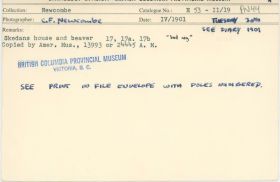 Collection: Newcombe Catalogue No.: E 53 - 11/19 PN44
Photographer: C.F. Newcombe Date: IV/1901
Remarks: SEE DIARY 1901
Skedans house and beaver 17, 17a. 17b
Copied by Amer. Mus., 13993 or 24445 A. M.
BRITISH COLUMBIA PROVINCIAL MUSEUM
VICTORIA, B. C.
SEE PRINT IN FILE ENVELOPE WITH POLES NUMBERED.